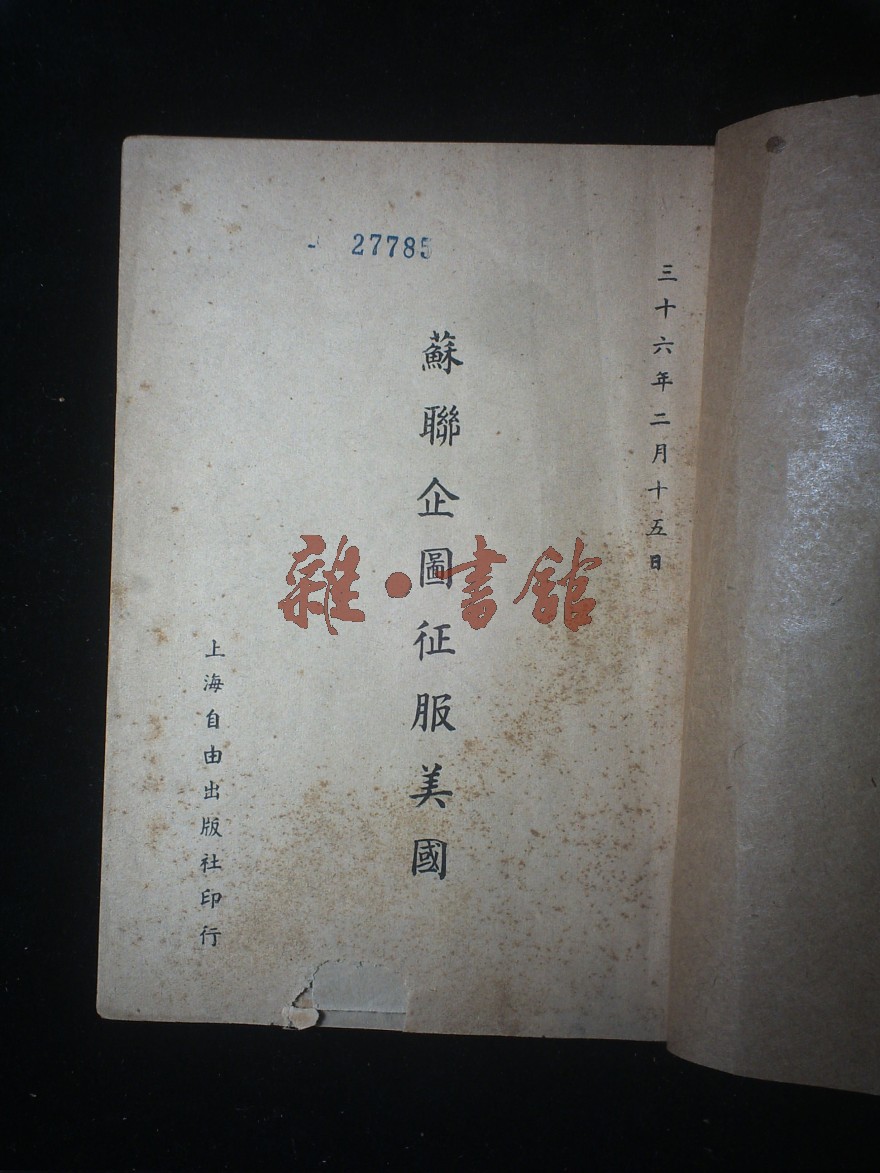 27785
三十六年二月十五日
蘇聯企圖征服美國
上海自由出版社印行
雜·書館